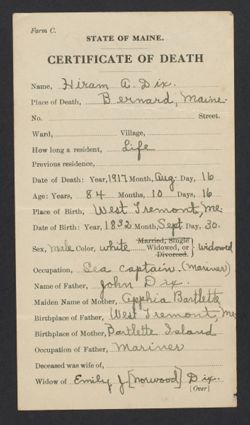 Form C.
STATE OF MAINE.
CERTIFICATE OF DEATH
Name, Hiram A. Dix.
Place of Death, Bernard, Maine.
No. Street.
Ward, Village,
How long a resident, Life
Previous residence,
Date of Death: Year, 1917 Month, Aug. Day, 16
Age: Years, 84 Months, 10 Days, 16
Place of Birth, West Tremont, Me.
Date of Birth: Year, 1832 Month, Sept Day, 30.
Married, Single
Sex, male Color, white Widowed, or widowed
Divorced.
Occupation, Sea captain. (Mariner)
Name of Father, John Dix.
Maiden Name of Mother, Apphia Bartlett
Birthplace of Father, West Tremont, Me.
Birthplace of Mother, Bartlette Island
Occupation of Father, Mariner
Deceased was wife of,
Widow of Emily J. [Norwood] Dix.
[Over]